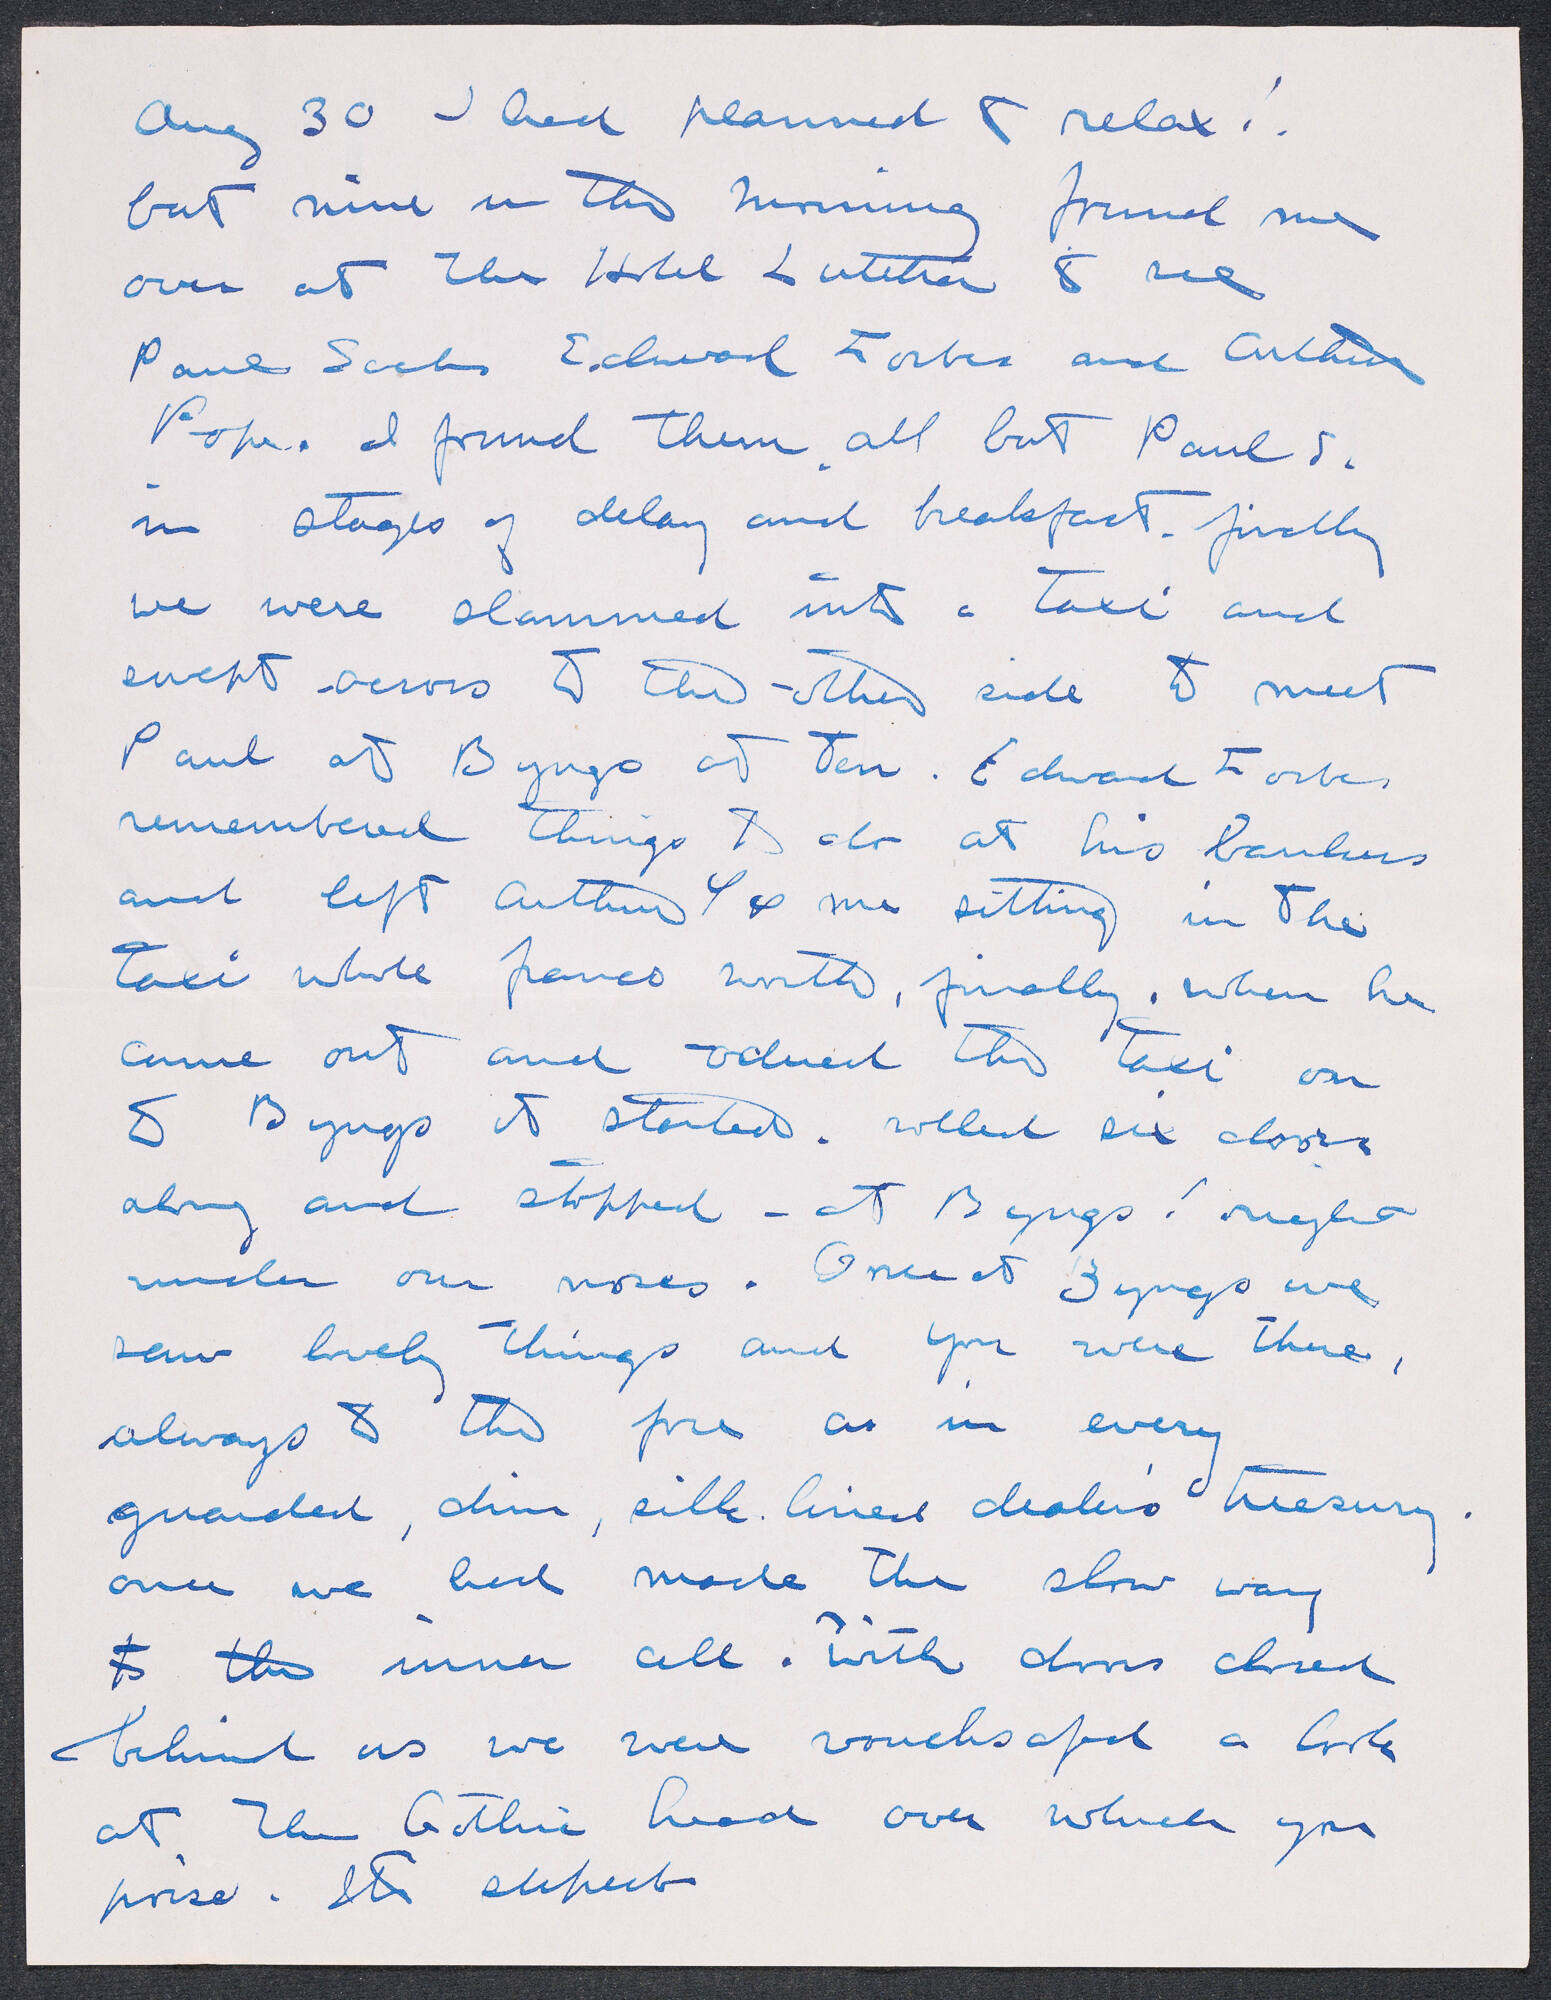 Aug 30 I had planned to relax!.
but nine in the morning found me
over at The Hotel Lutetia to see
Paul Sachs Edward Forbes and Arthur
Pope. I found them, all but Paul S.
in stages of delay and breakfast. finally
we were slammed into a taxi and
swept across to the other side to meet
Paul at Byngs at Ten. Edward Forbes
remembered things to do at his bankers
and left Arthur & me sitting in the
taxi whole francs worth, finally, when he
came out and the taxi on
to Byngs it started. rolled six doors
along and stopped - at Byngs! right
under our noses. Once at Byngs we
saw lovely things and you were there,
always to the fore as in every
guarded, dim, silk lined dealer's treasury.
once we had made the slow way
to the inner cell. With doors closed
behind us we were vouchsafed a look
at The Gothic head over which you
poise. Its